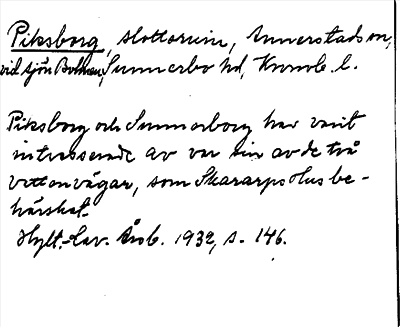 Piksborg, slottsruin, Annerstads sn,
vid sjön Bolmen, Sunnerbo hd, Kronob. l.
Piksborg och Sunnerborg har varit
intresserade av var sin av de två
vattenvägar, som Skararpsolus be-
härskat.
Hylt.-Cav. Årsb. 1932, s. 146.